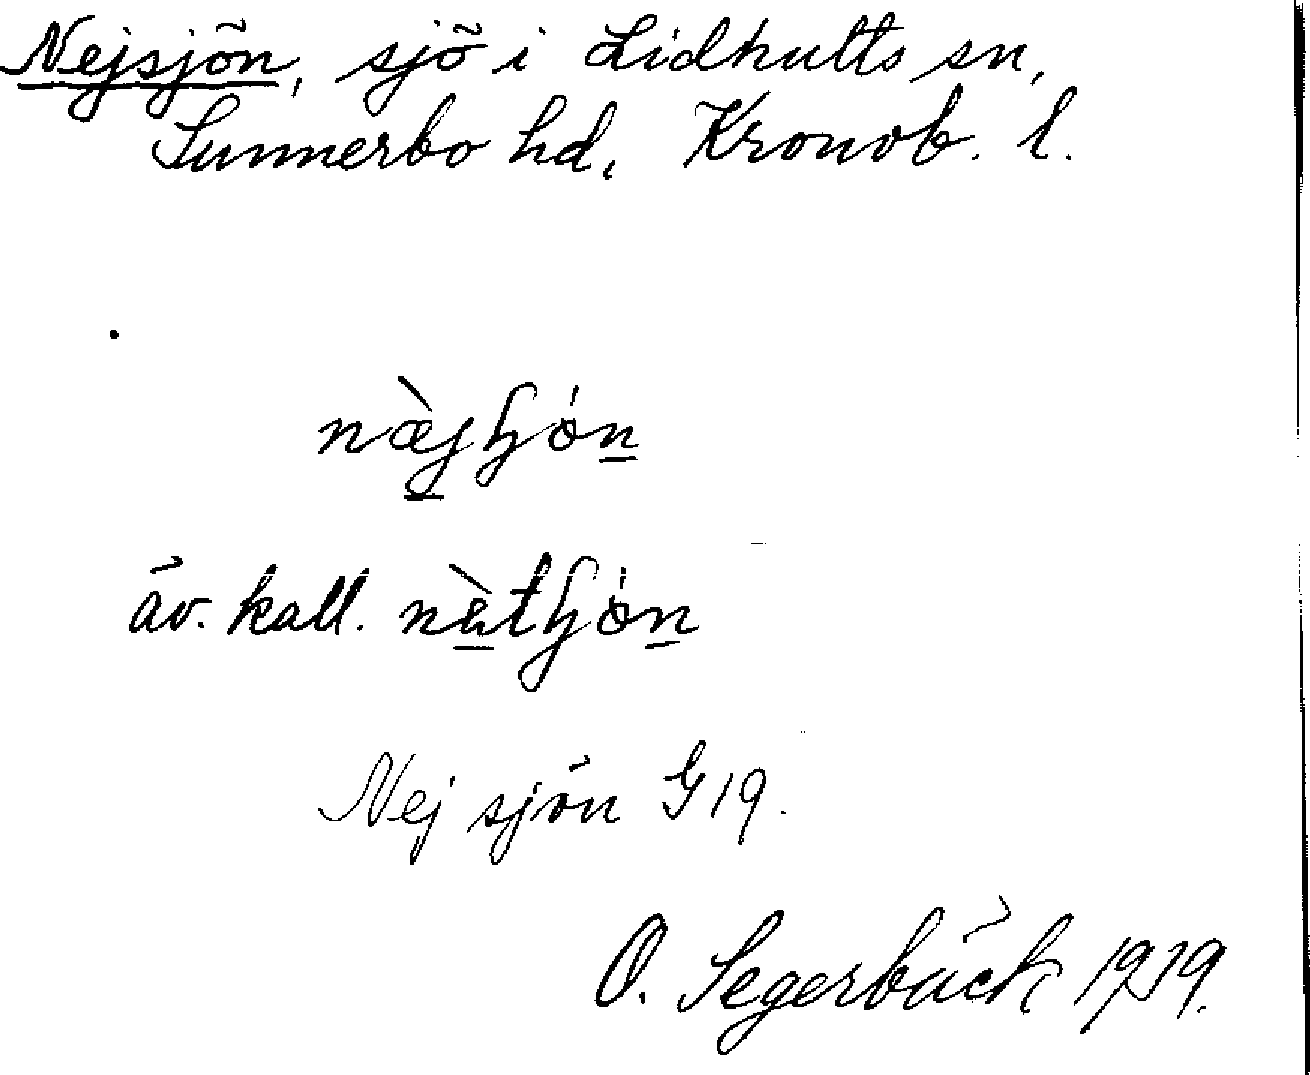 Nejsjön, sjö i Lidhults sn,
Sunnerbo hd, Kronob. l.
næ̀jɧón
äv. kall. nètɧón
Nej sjön G19.
O. Segerbäck 1919.